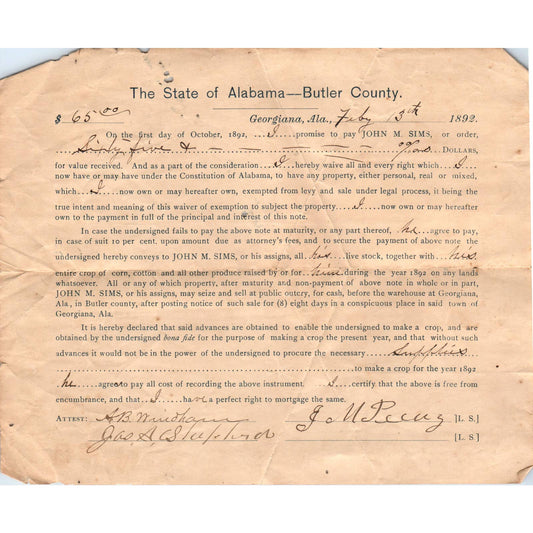 The State of Alabama--Butler County.
$ 65.00 Georgiana, Ala., Feby 13th 1892.
On the first day of October, 1892, I promise to pay JOHN M. SIMS, or order,
Sixty five & — — — — — — 00/100 DOLLARS,
for value received. And as a part of the consideration I hereby waive all and every right which I
now have or may have under the Constitution of Alabama, to have any property, either personal, real or mixed,
which I now own or may hereafter own, exempted from levy and sale under legal process, it being the
true intent and meaning of this waiver of exemption to subject the property I now own or may hereafter
own to the payment in full of the principal and interest of this note.
In case the undersigned fails to pay the above note at maturity, or any part thereof, he agree to pay,
in case of suit 10 per cent. upon amount due as attorney's fees, and to secure the payment of above note the
undersigned hereby conveys to JOHN M. SIMS, or his assigns, all his live stock, together with his
entire crop of corn, cotton and all other produce raised by or for him during the year 1892 on any lands
whatsoever. All or any of which property, after maturity and non-payment of above note in whole or in part,
JOHN M. SIMS, or his assigns, may seize and sell at public outcry, for cash, before the warehouse at Georgiana,
Ala., in Butler county, after posting notice of such sale for (8) eight days in a conspicuous place in said town of
Georgiana, Ala.
It is hereby declared that said advances are obtained to enable the undersigned to make a crop, and are
obtained by the undersigned bona fide for the purpose of making crop the present year, and that without such
advances it would not be in the power of the undersigned to procure the necessary Supplies
to make a crop for the year 1892
he agree to pay all cost of recording the above instrument. I certify that the above is free from
encumbrance, and that I have a perfect right to mortgage the same.
ATTEST: A.B. Windham [L. S.]
Jas. A. [L. S.]